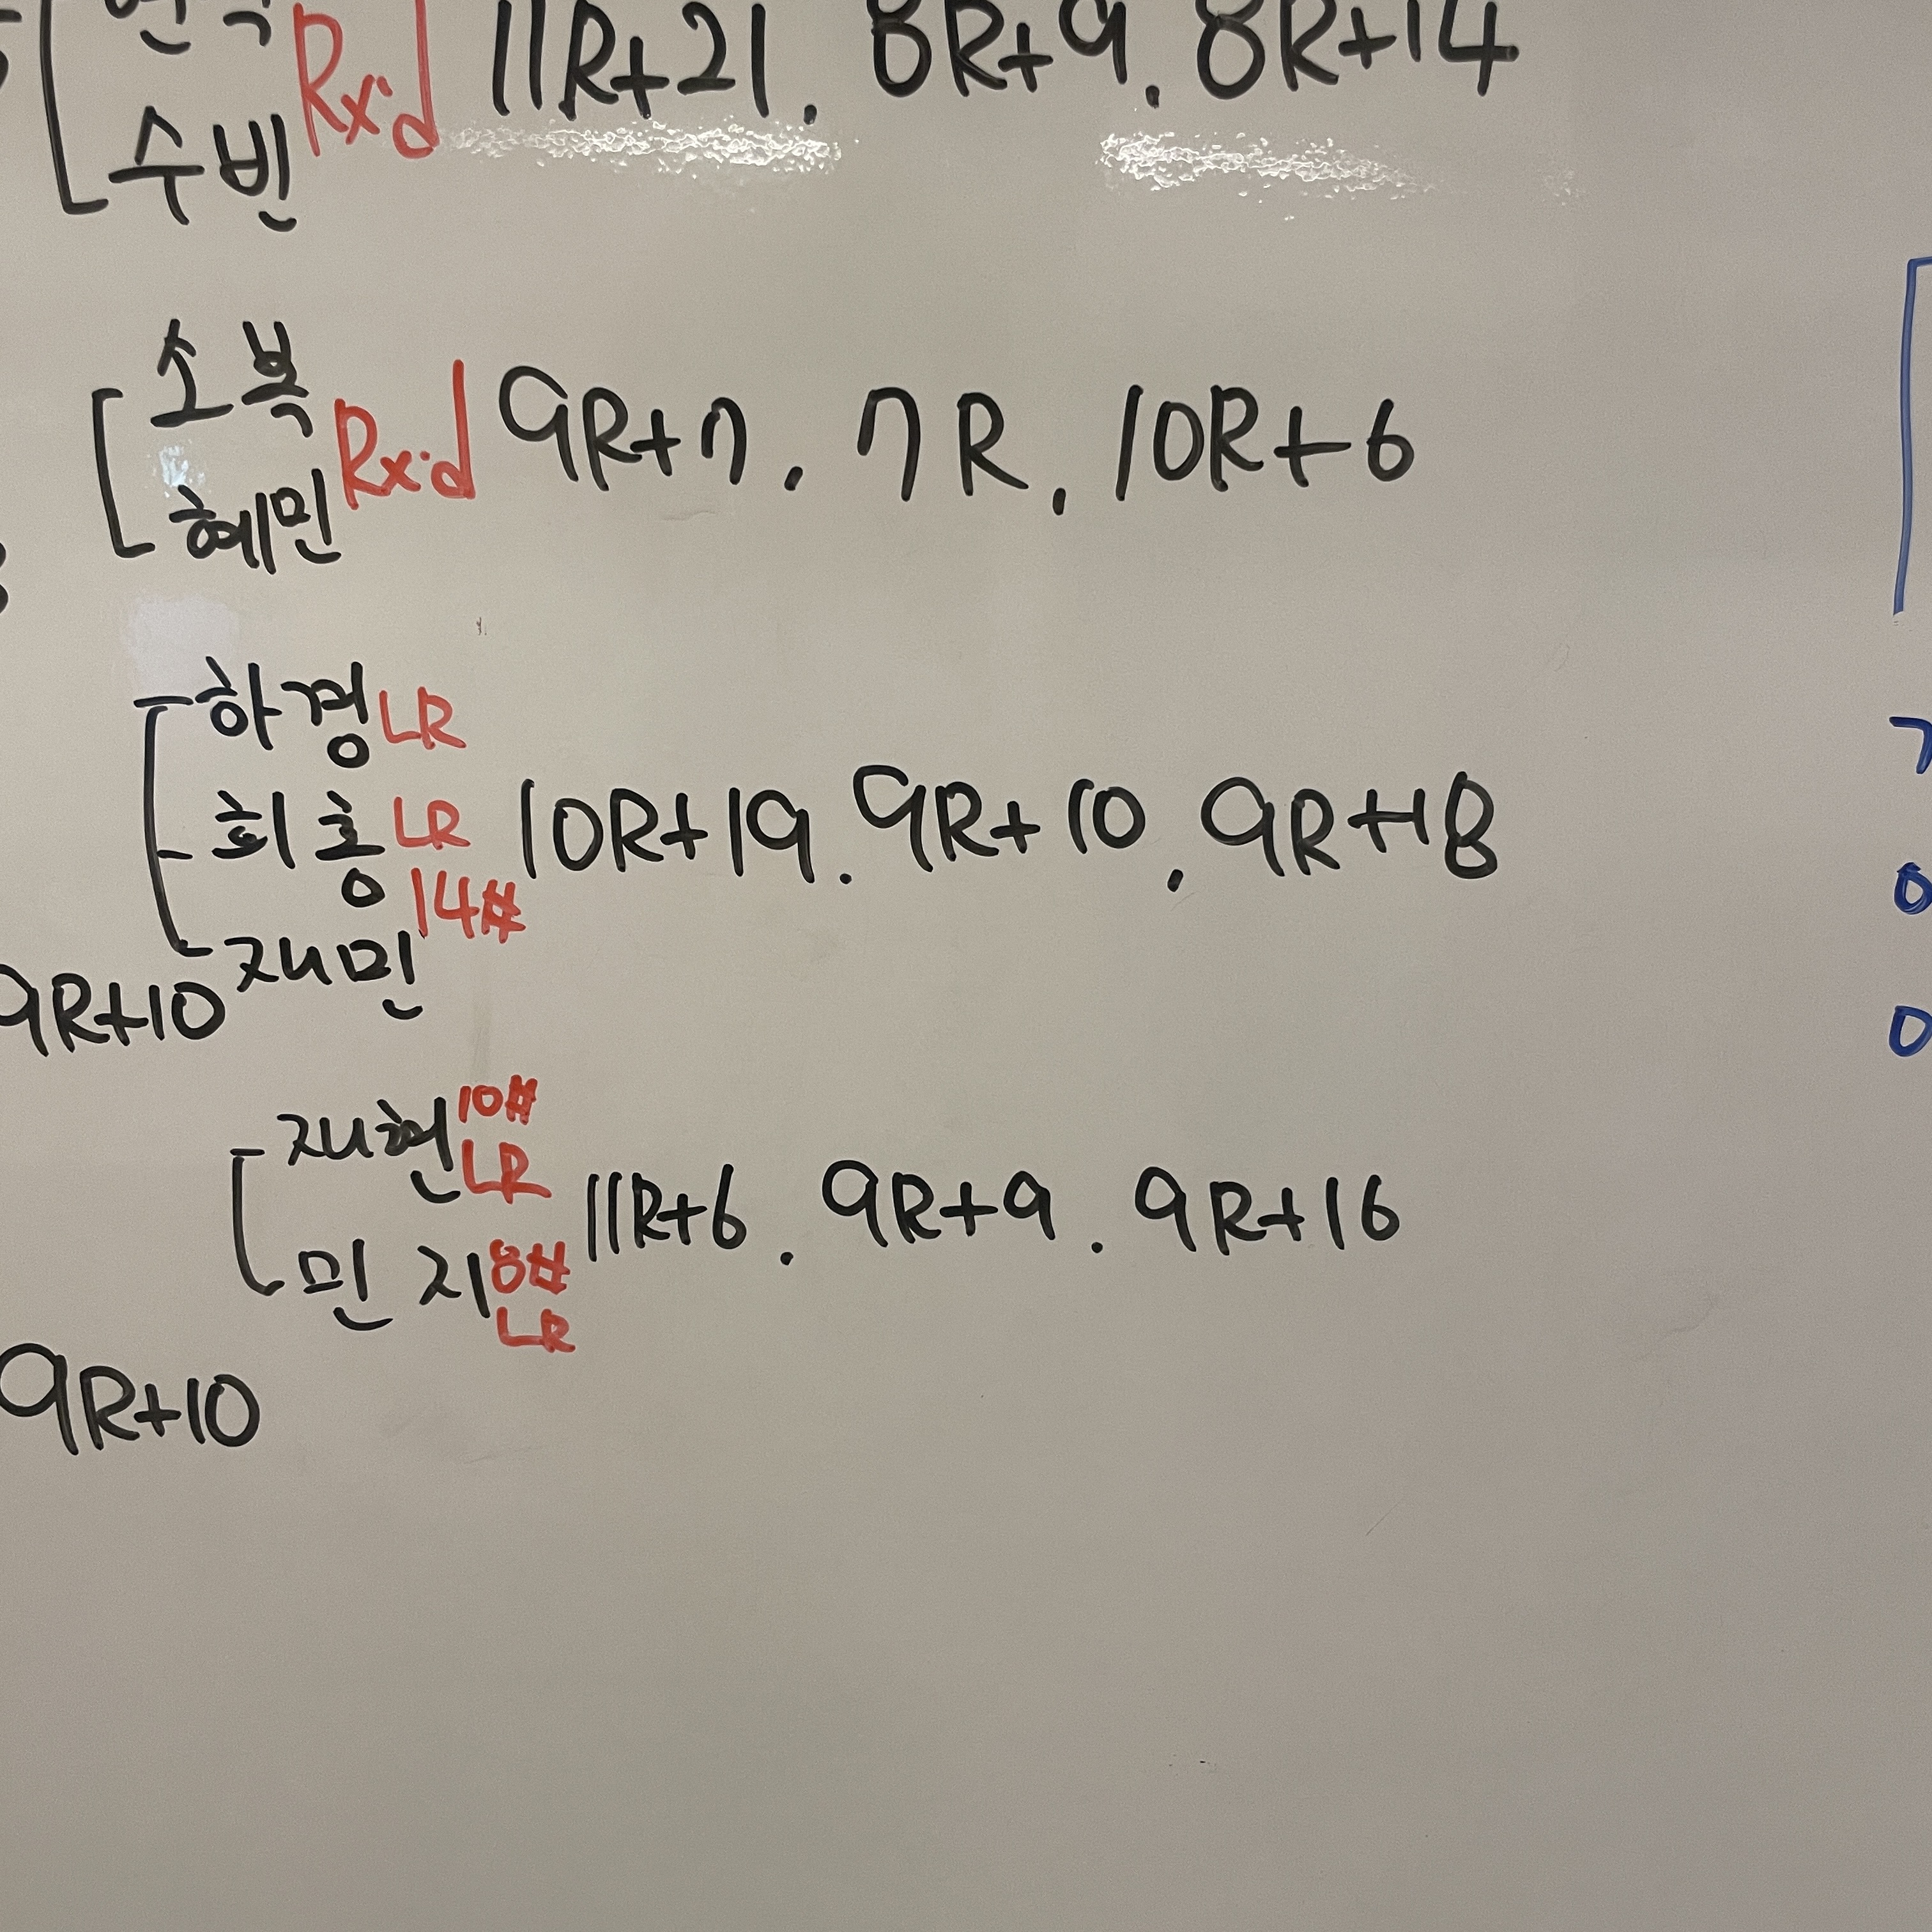 Rx'd 11R+21, 8R+9, 8R+14
수빈
소복
Rx'd 9R+7, 7R, 10R+6
혜민
하경 LR
희홍 LR 10R+19, 9R+10, 9R+18
14#
재민
9R+10
재현 10#
LR
11R+6, 9R+9, 9R+16
민지 8#
LR
9R+10